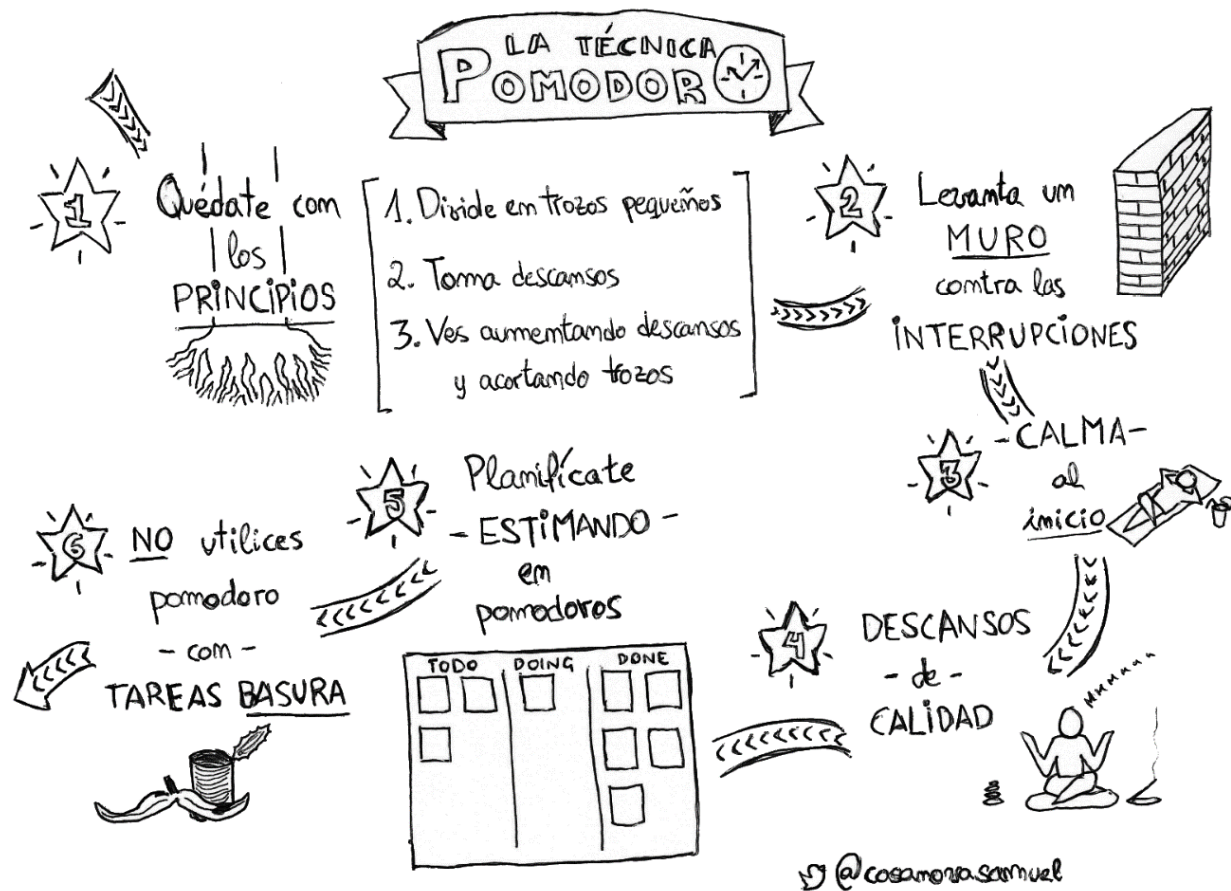 LA TÉCNICA
POMODORO
1
Quédate con
los
PRINCIPIOS
1. Divide en trozos pequeños
2. Toma descansos
3. Ves aumentando descansos
y acortando trozos
2
Levanta un
MURO
contra las
INTERRUPCIONES
3
-CALMA-
al
inicio
4
DESCANSOS
- de -
CALIDAD
MMMMMM
5
Planifícate
- ESTIMANDO -
en
pomodoros
TODO DOING DONE
6
NO utilices
pomodoro
- con -
TAREAS BASURA
@casanovasamuel